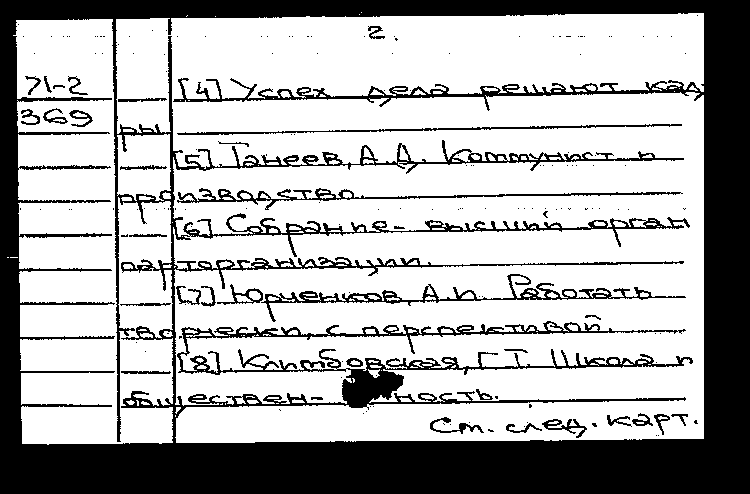 2.
71-2 [4] Успех дела решают кад-
369 ры
[5] Танеев, А.Д. Коммунист и
производство.
[6] Собрание - высший орган
парторганизации.
[7] Юрченков, А.И. Работать
творчески, с перспективой.
[8] Климбовская, Г.Т. Школа и
обществен- ность.
См. след. карт.